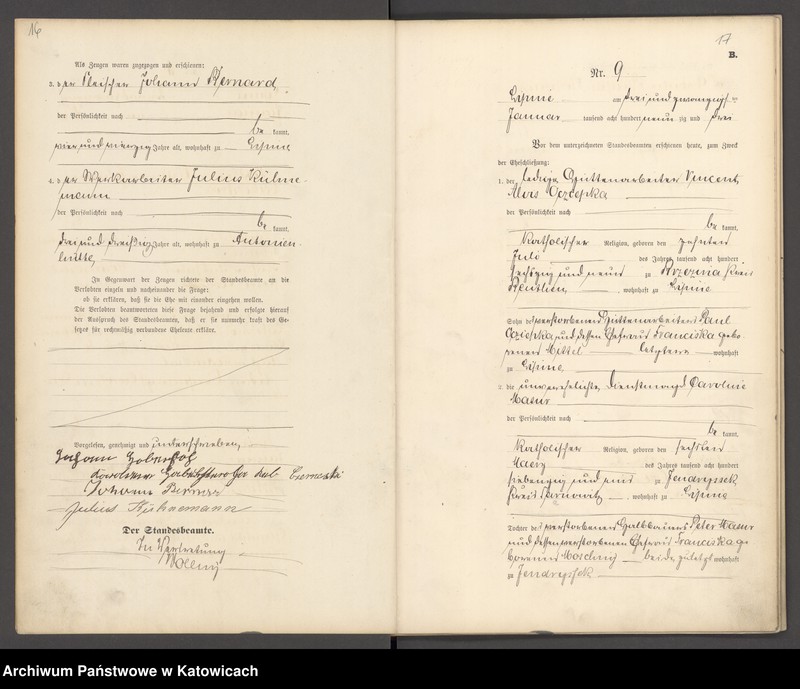 16
Als Zeugen waren zugezogen und erschienen:
3. der Fleischer Johann Bernard
der Persönlichkeit nach
be kannt,
vier und vierzig Jahre alt, wohnhaft zu Lipine
4. der Werkarbeiter Julius Kühne-
mann
der Persönlichkeit nach
be kannt,
drei und dreißig Jahre alt, wohnhaft zu Antonien-
hütte
In Gegenwart der Zeugen richtete der Standesbeamte an die
Verlobten einzeln und nacheinander die Frage:
ob sie erklären, daß sie die Ehe mit einander eingehen wollen.
Die Verlobten beantworteten diese Frage bejahend und erfolgte hierauf
der Ausspruch des Standesbeamten, daß er sie nunmehr kraft des Ge-
setzes für rechtmäßig verbundene Eheleute erkläre.
Vorgelesen, genehmigt und unterschrieben,
Johann
Johann
Julius Kühnemann
Der Standesbeamte.
In Vertretung
Wolleny
17
B.
Nr. 9
Lipine am drei und zwanzigsten
Januar tausend acht hundert neun zig und drei
Vor dem unterzeichneten Standesbeamten erschienen heute, zum Zweck
der Eheschließung:
1. der ledige Hüttenarbeiter Vincent
Alois
der Persönlichkeit nach
be kannt,
katholischer Religion, geboren den zehnten
Juli des Jahres tausend acht hundert
sechszig und neun zu Kreis
Beuthen, wohnhaft zu Lipine
Sohn des verstorbenen Hüttenarbeiters Paul
und dessen Ehefrau Franciska gebo
renen Mittel letztere wohnhaft
zu Lipine
2. die unverehelichte Dienstmagd Caroline
Mazur
der Persönlichkeit nach
be kannt,
katholischer Religion, geboren den sechsten
März des Jahres tausend acht hundert
siebenzig und eins zu Jendryssek
Kreis Tarnowitz, wohnhaft zu Lipine
Tochter des verstorbenen Halbbauers Peter Mazur
und dessen verstorbenen Ehefrau Franciska ge
borenen beide zuletzt wohnhaft
zu Jendryssek
Archiwum Państwowe w Katowicach